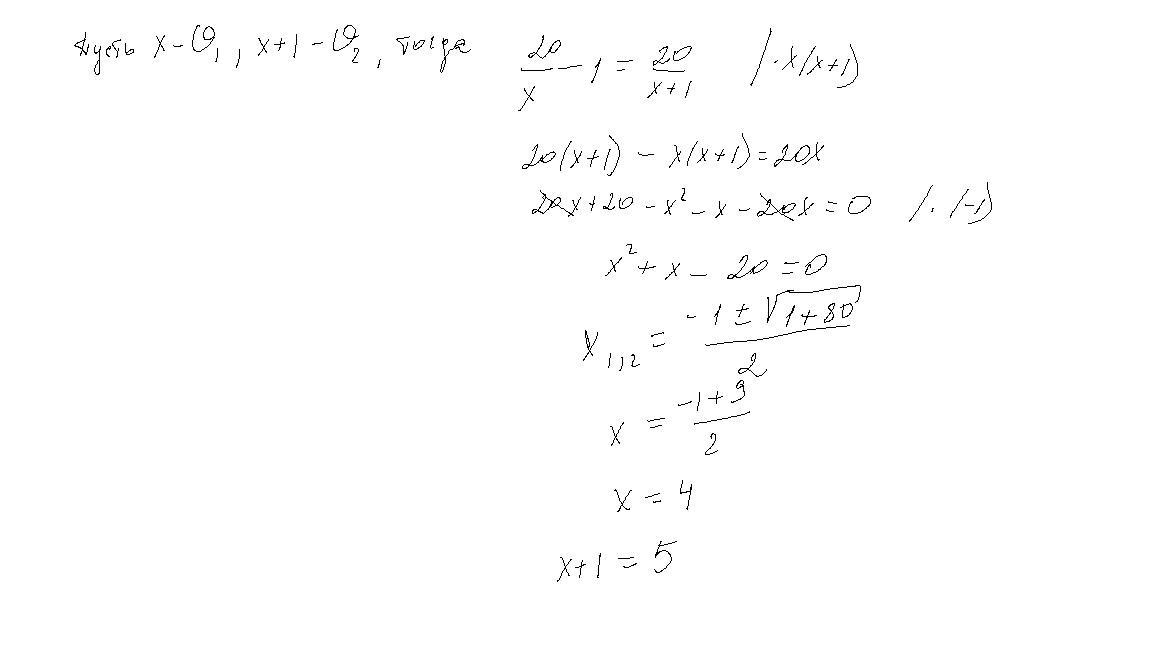 Пусть x – ϑ₁, x+1 – ϑ₂, тогда 20/x – 1 = 20/(x+1) /· x(x+1)
20(x+1) – x(x+1) = 20x
20x + 20 – x² – x – 20x = 0 /· (-1)
x² + x – 20 = 0
x₁,₂ = (-1 ± √(1+80))/2
x = (-1+9)/2
x = 4
x+1 = 5